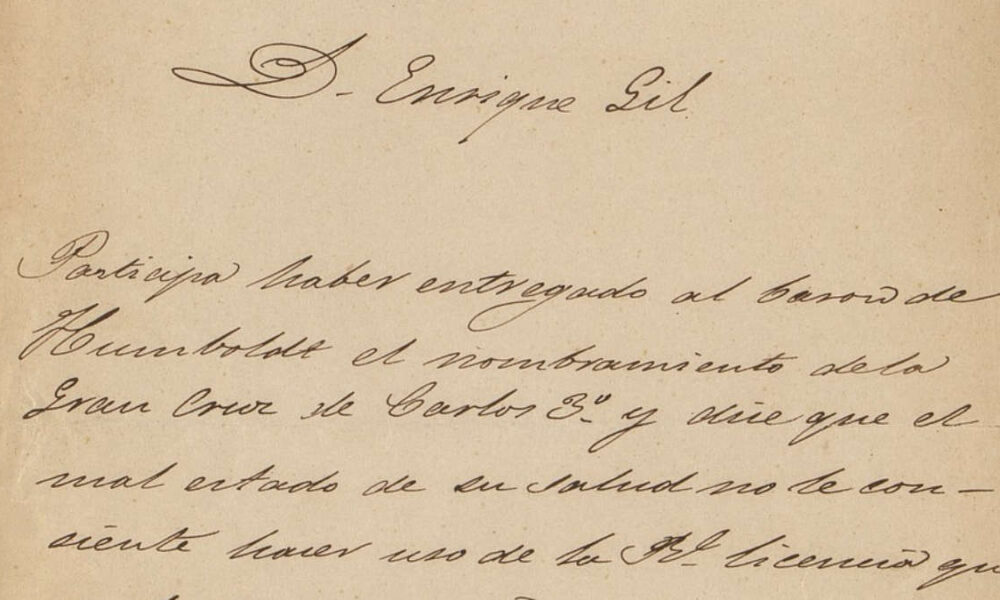 D. Enrique Gil
Participa haber entregado al baron de
Humboldt el nombramiento de la
Gran Cruz de Carlos 3.º y dice que el
mal estado de su salud no le con-
siente hacer uso de la Rl. licencia qu